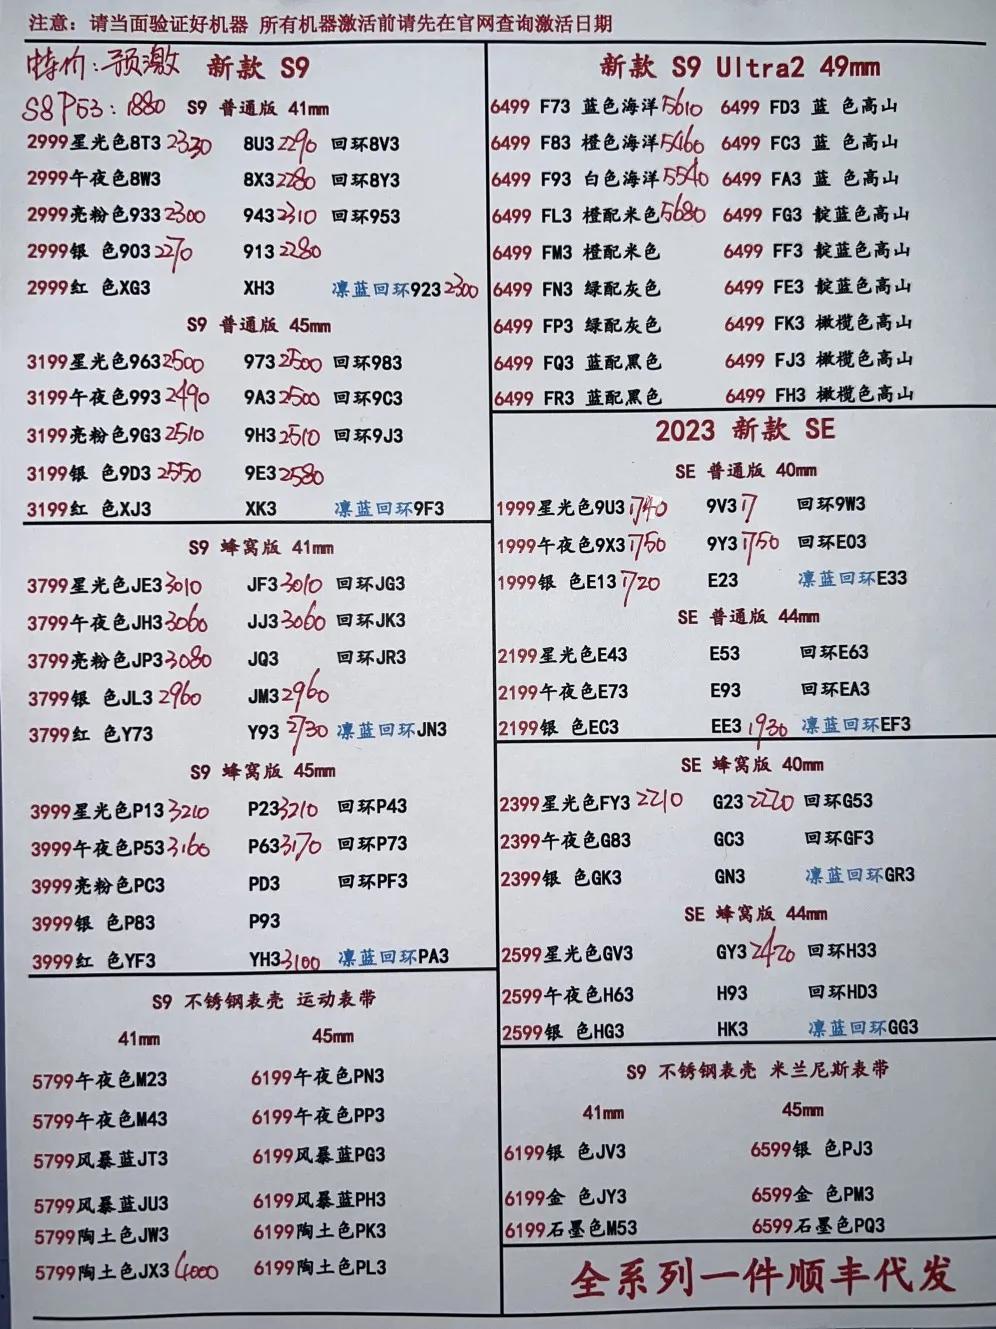 注意：请当面验证好机器 所有机器激活前请先在官网查询激活日期
特价：预激 新款 S9
S8 P53：1880 S9 普通版 41mm
2999星光色8T3 2330 8U3 2290 回环8V3
2999午夜色8W3 8X3 2280 回环8Y3
2999亮粉色933 2300 943 2310 回环953
2999银 色903 2270 913 2280
2999红 色XG3 XH3 凛蓝回环923 2300
S9 普通版 45mm
3199星光色963 2500 973 2500 回环983
3199午夜色993 2490 9A3 2500 回环9C3
3199亮粉色9G3 2510 9H3 2510 回环9J3
3199银 色9D3 2550 9E3 2580
3199红 色XJ3 XK3 凛蓝回环9F3
S9 蜂窝版 41mm
3799星光色JE3 3010 JF3 3010 回环JG3
3799午夜色JH3 3060 JJ3 3060 回环JK3
3799亮粉色JP3 3080 JQ3 回环JR3
3799银 色JL3 2960 JM3 2960
3799红 色Y73 Y93 2730 凛蓝回环JN3
S9 蜂窝版 45mm
3999星光色P13 3210 P23 3210 回环P43
3999午夜色P53 3160 P63 3170 回环P73
3999亮粉色PC3 PD3 回环PF3
3999银 色P83 P93
3999红 色YF3 YH3 3100 凛蓝回环PA3
S9 不锈钢表壳 运动表带
41mm 45mm
5799午夜色M23 6199午夜色PN3
5799午夜色M43 6199午夜色PP3
5799风暴蓝JT3 6199风暴蓝PG3
5799风暴蓝JU3 6199风暴蓝PH3
5799陶土色JW3 6199陶土色PK3
5799陶土色JX3 4000 6199陶土色PL3
新款 S9 Ultra2 49mm
6499 F73 蓝色海洋 5610 6499 FD3 蓝 色高山
6499 F83 橙色海洋 5460 6499 FC3 蓝 色高山
6499 F93 白色海洋 5540 6499 FA3 蓝 色高山
6499 FL3 橙配米色 5680 6499 FG3 靛蓝色高山
6499 FM3 橙配米色 6499 FF3 靛蓝色高山
6499 FN3 绿配灰色 6499 FE3 靛蓝色高山
6499 FP3 绿配灰色 6499 FK3 橄榄色高山
6499 FQ3 蓝配黑色 6499 FJ3 橄榄色高山
6499 FR3 蓝配黑色 6499 FH3 橄榄色高山
2023 新款 SE
SE 普通版 40mm
1999星光色9U3 1740 9V3 17 回环9W3
1999午夜色9X3 1750 9Y3 1750 回环E03
1999银 色E13 1720 E23 凛蓝回环E33
SE 普通版 44mm
2199星光色E43 E53 回环E63
2199午夜色E73 E93 回环EA3
2199银 色EC3 EE3 1930 凛蓝回环EF3
SE 蜂窝版 40mm
2399星光色FY3 2210 G23 2220 回环G53
2399午夜色G83 GC3 回环GF3
2399银 色GK3 GN3 凛蓝回环GR3
SE 蜂窝版 44mm
2599星光色GV3 GY3 2420 回环H33
2599午夜色H63 H93 回环HD3
2599银 色HG3 HK3 凛蓝回环GG3
S9 不锈钢表壳 米兰尼斯表带
41mm 45mm
6199银 色JV3 6599银 色PJ3
6199金 色JY3 6599金 色PM3
6199石墨色M53 6599石墨色PQ3
全系列一件顺丰代发